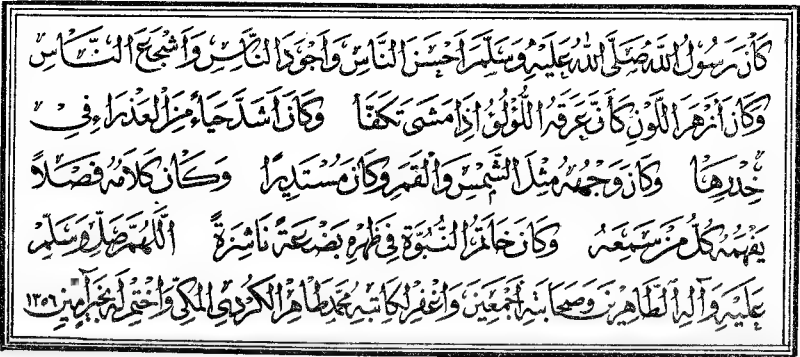 كَانَ رَسُولُ اللهِ صَلَّى اللهُ عَلَيْهِ وَسَلَّمَ أَحْسَنَ النَّاسِ وَأَجْوَدَ النَّاسِ وَأَشْجَعَ النَّاسِ
وَكَانَ أَزْهَرَ اللَّوْنِ كَأَنَّ عَرَقَهُ اللُّؤْلُؤُ إِذَا مَشَى تَكَفَّأَ وَكَانَ أَشَدَّ حَيَاءً مِنَ الْعَذْرَاءِ فِي
خِدْرِهَا وَكَانَ وَجْهُهُ مِثْلَ الشَّمْسِ وَالْقَمَرِ وَكَانَ مُسْتَدِيرًا وَكَانَ كَلَامُهُ فَصْلًا
يَفْهَمُهُ كُلُّ مَنْ سَمِعَهُ وَكَانَ خَاتَمُ النُّبُوَّةِ فِي ظَهْرِهِ بَضْعَةً نَاشِزَةً اللَّهُمَّ صَلِّ وَسَلِّمْ
عَلَيْهِ وَآلِهِ الطَّاهِرِينَ وَصَحَابَتِهِ أَجْمَعِينَ وَاغْفِرْ لِكَاتِبِهِ مُحَمَّد طَاهِر الْكُرْدِي الْمَكِّي وَاخْتِمْ لَهُ بِخَيْرٍ آمِينَ ١٣٥٦